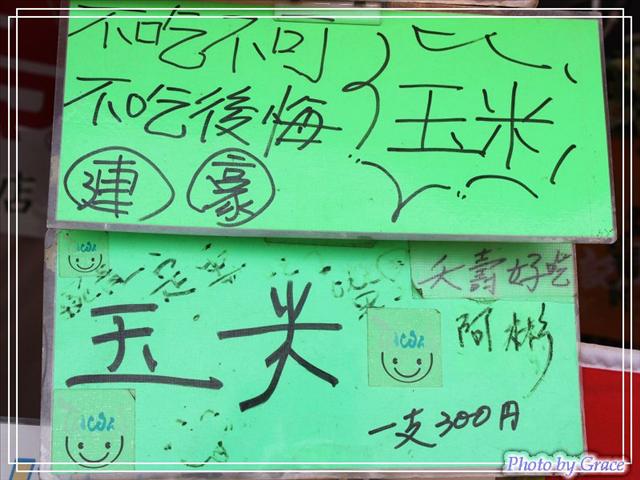 不吃不可
不吃後悔
玉米
連 豪
夭壽好吃
玉米
阿彬
一支300円
Photo by Grace